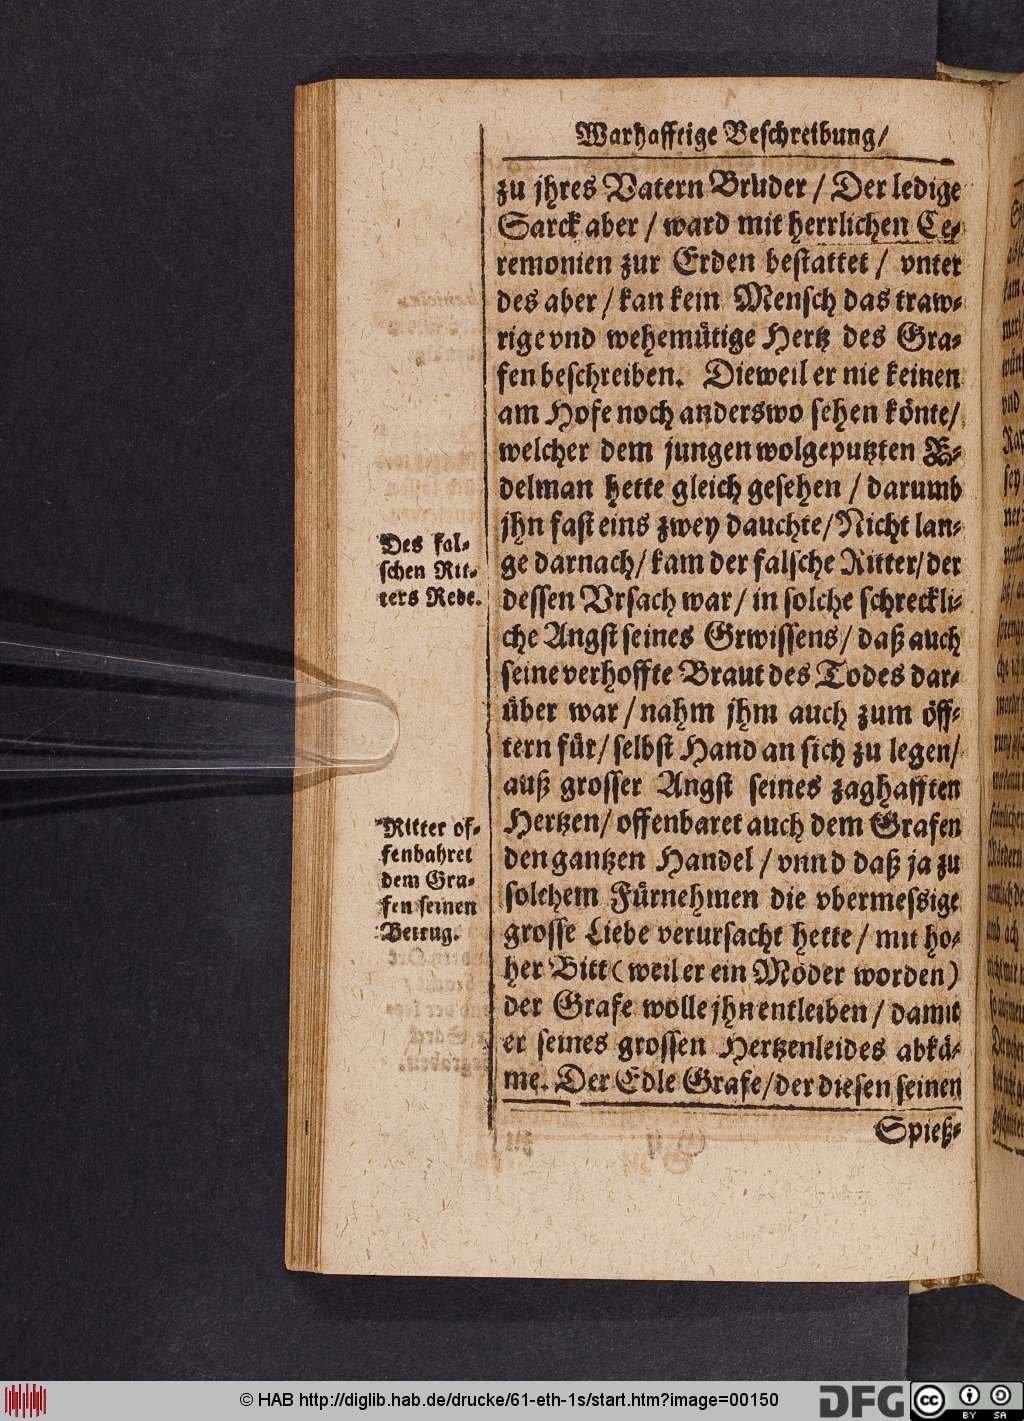 Warhafftige Beschreibung/
zu jhres Vatern Brüder / Der ledige
Sarck aber / ward mit herrlichen Ce-
remonien zur Erden bestattet / vnter
des aber / kan kein Mensch das traw-
rige vnd wehemütige Hertz des Gra-
fen beschreiben. Dieweil er nie keinen
am Hofe noch anderswo sehen könte/
welcher dem jungen wolgeputzten E-
delman hette gleich gesehen / darumb
jhn fast eins zwey dauchte/ Nicht lan-
ge darnach/ kam der falsche Ritter/ der
dessen Vrsach war / in solche schreckli-
che Angst seines Grwissens/ daß auch
seine verhoffte Braut des Todes dar-
über war / nahm jhm auch zum öff-
tern für/ selbst Hand an sich zu legen/
auß grosser Angst seines zaghafften
Hertzen/ offenbaret auch dem Grafen
den gantzen Handel / vnnd daß ja zu
solchem Fürnehmen die vbermessige
grosse Liebe verursacht hette / mit ho-
her Bitt (weil er ein Möder worden)
der Grafe wolle jhn entleiben / damit
er seines grossen Hertzenleides abkä-
me. Der Edle Grafe/ der diesen seinen
Spieß-
Des fal-
schen Rit-
ters Rede.
Ritter of-
fenbahret
dem Gra-
fen seinen
Betrug.
© HAB http://diglib.hab.de/drucke/61-eth-1s/start.htm?image=00150
DFG
cc
BY SA